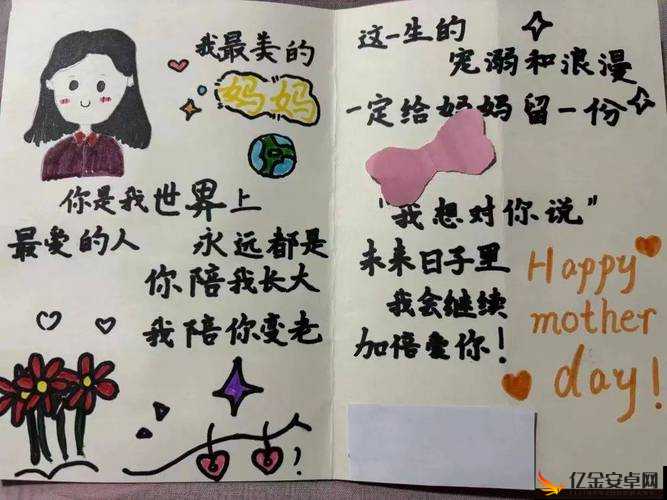 我最美的
妈妈
你是我世界上
最爱的人 永远都是
你陪我长大
我陪你变老
这一生的
宠溺和浪漫
一定给妈妈留一份
"我想对你说"
未来日子里
我会继续
加倍爱你！
Happy
mother
day!
亿金安卓网